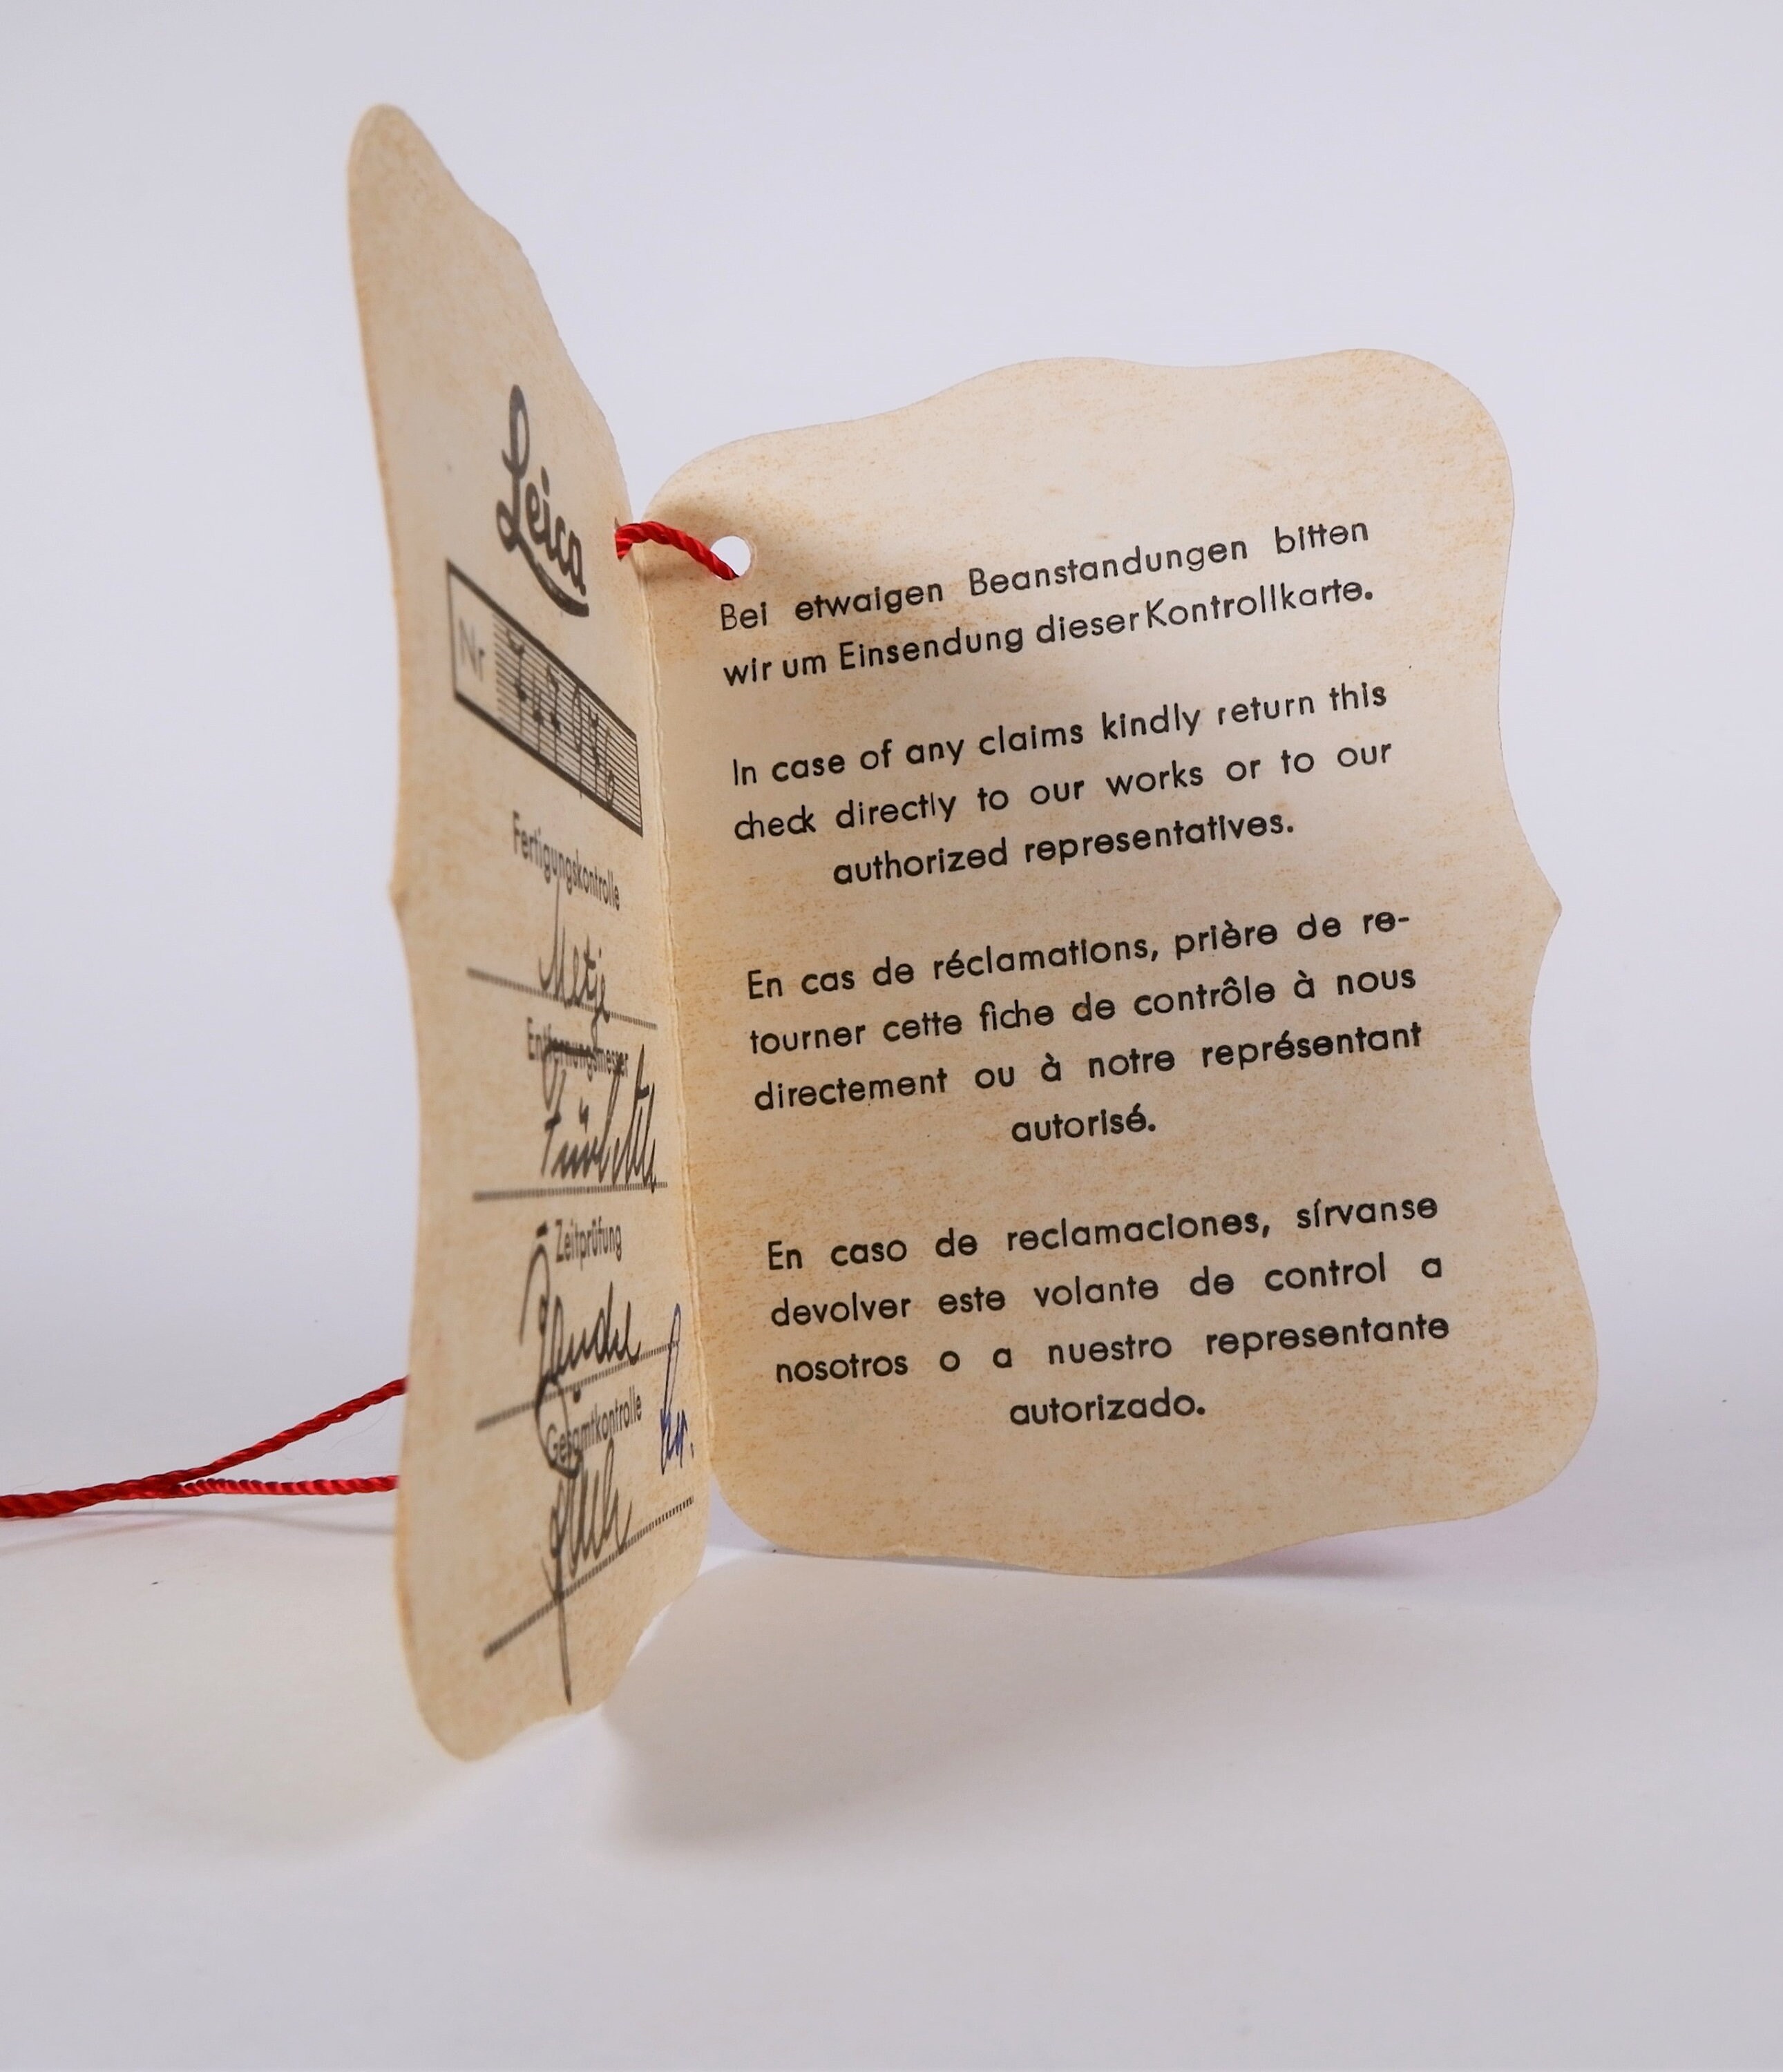 Leica
Nr
Fertigungskontrolle
Entfernungsmesser
Zeitprüfung
Gesamtkontrolle
Bei etwaigen Beanstandungen bitten
wir um Einsendung dieser Kontrollkarte.
In case of any claims kindly return this
check directly to our works or to our
authorized representatives.
En cas de réclamations, prière de re-
tourner cette fiche de contrôle à nous
directement ou à notre représentant
autorisé.
En caso de reclamaciones, sírvanse
devolver este volante de control a
nosotros o a nuestro representante
autorizado.